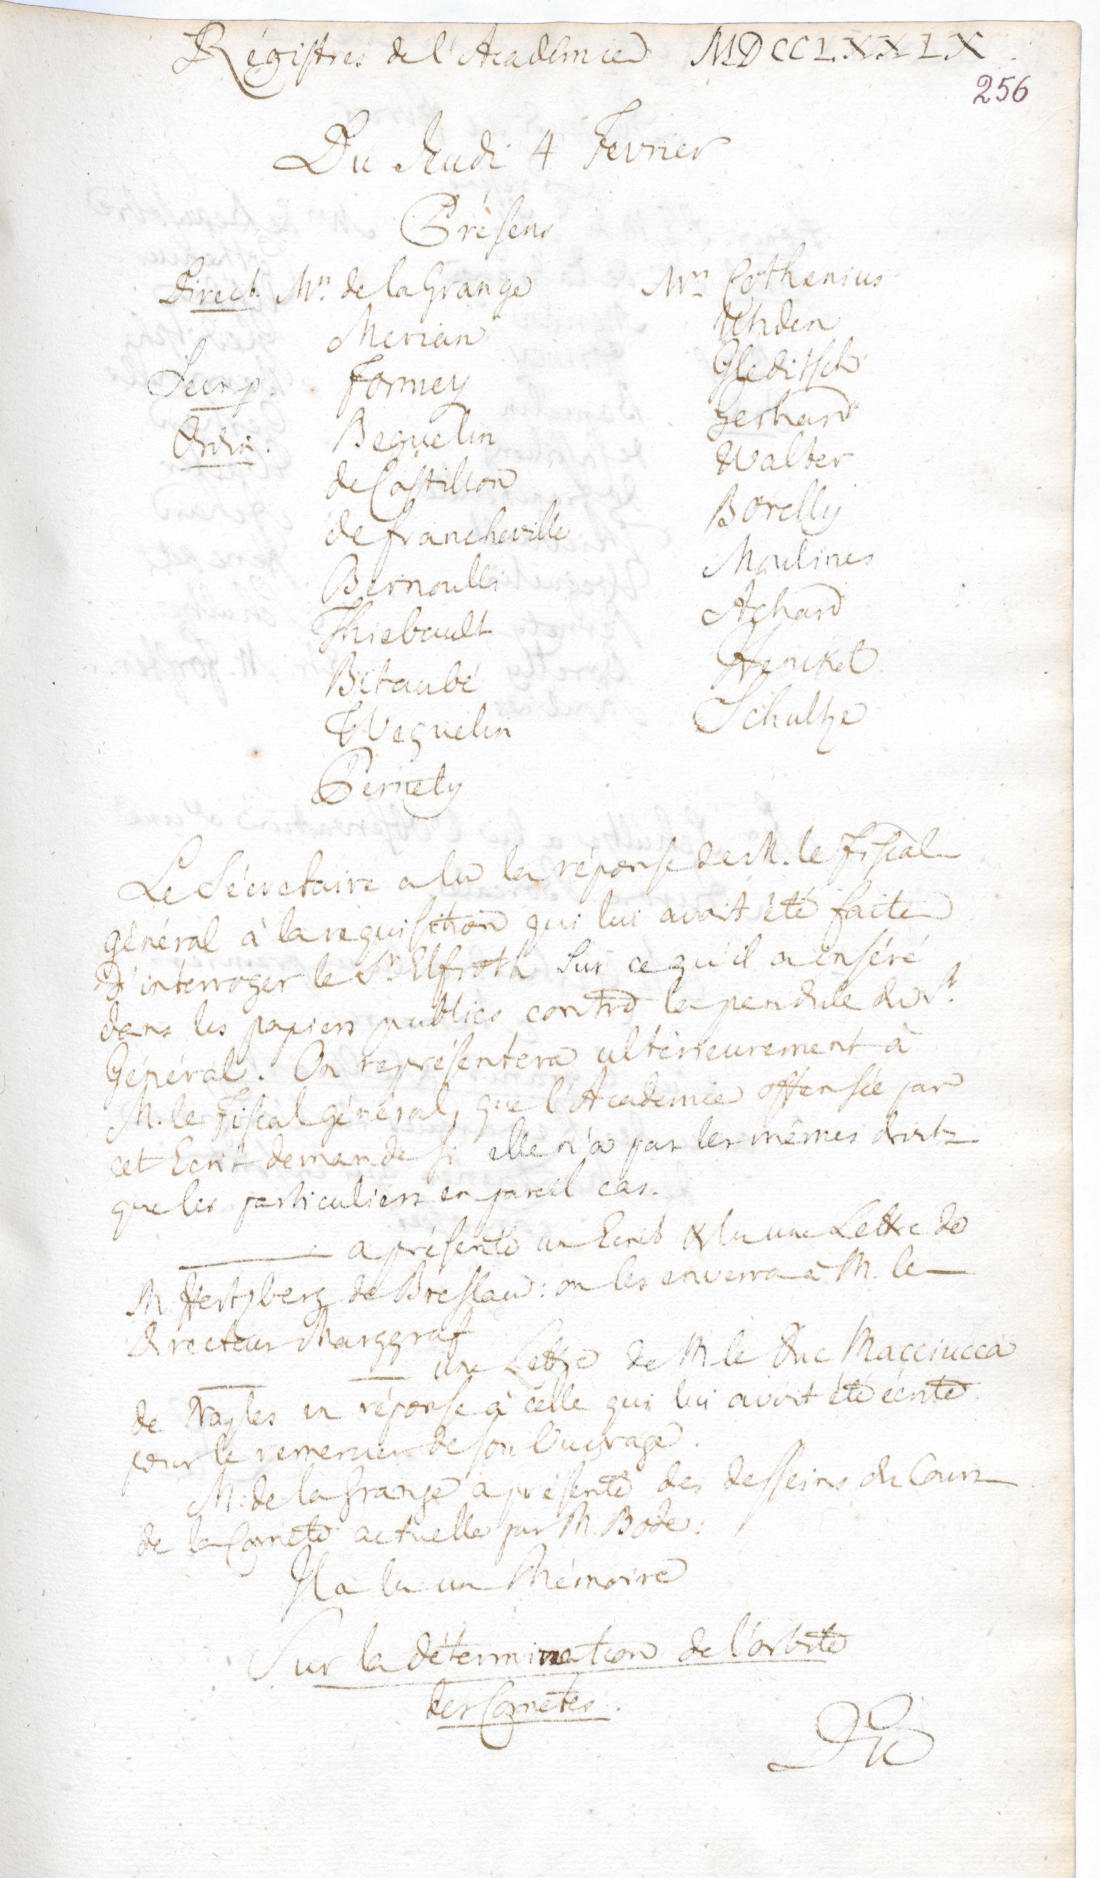 Régistres de l'Academie MDCCLXXIX
256
Du Jeudi 4 Fevrier
Présens
Direct. Mrs de la Grange
Merian
Secr. p. Formey
Ordin. Beguelin
de Castillon
de Francheville
Bernoulli
Thiebault
Bitaubé
Weguelin
Pernety
Mrs Cothenius
Gleditsch
Gerhard
Walter
Borelly
Moulines
Achard
Henckel
Schultze
Le Sécretaire a lu la réponse de M. le Fiscal
général à la requisition qui lui avoit été faite
d'interroger le Sr. Elfroth sur ce qu'il a enséré
dans les papiers publics contre la pendule du Sr.
Général. On représentera ultérieurement à
M. le Fiscal général, que l'Academie offensée par
cet Ecrit demande si elle n'a pas les mêmes droits
que les particuliers en pareil cas.
— a présenté un Ecrit & lu une Lettre de
M. Hertzberg de Breslau: on les enverra à M. le
directeur Marggraf
— — une Lettre de M. le Duc Macciucca
de Naples en réponse à celle qui lui avoit été écrite
pour le remercier de son Ouvrage.
M. de la Grange a présenté des desseins du Cours
de la Comete actuelle par M. Bode.
Il a lu un Mémoire
Sur la détermination de l'orbite
des Cometes.